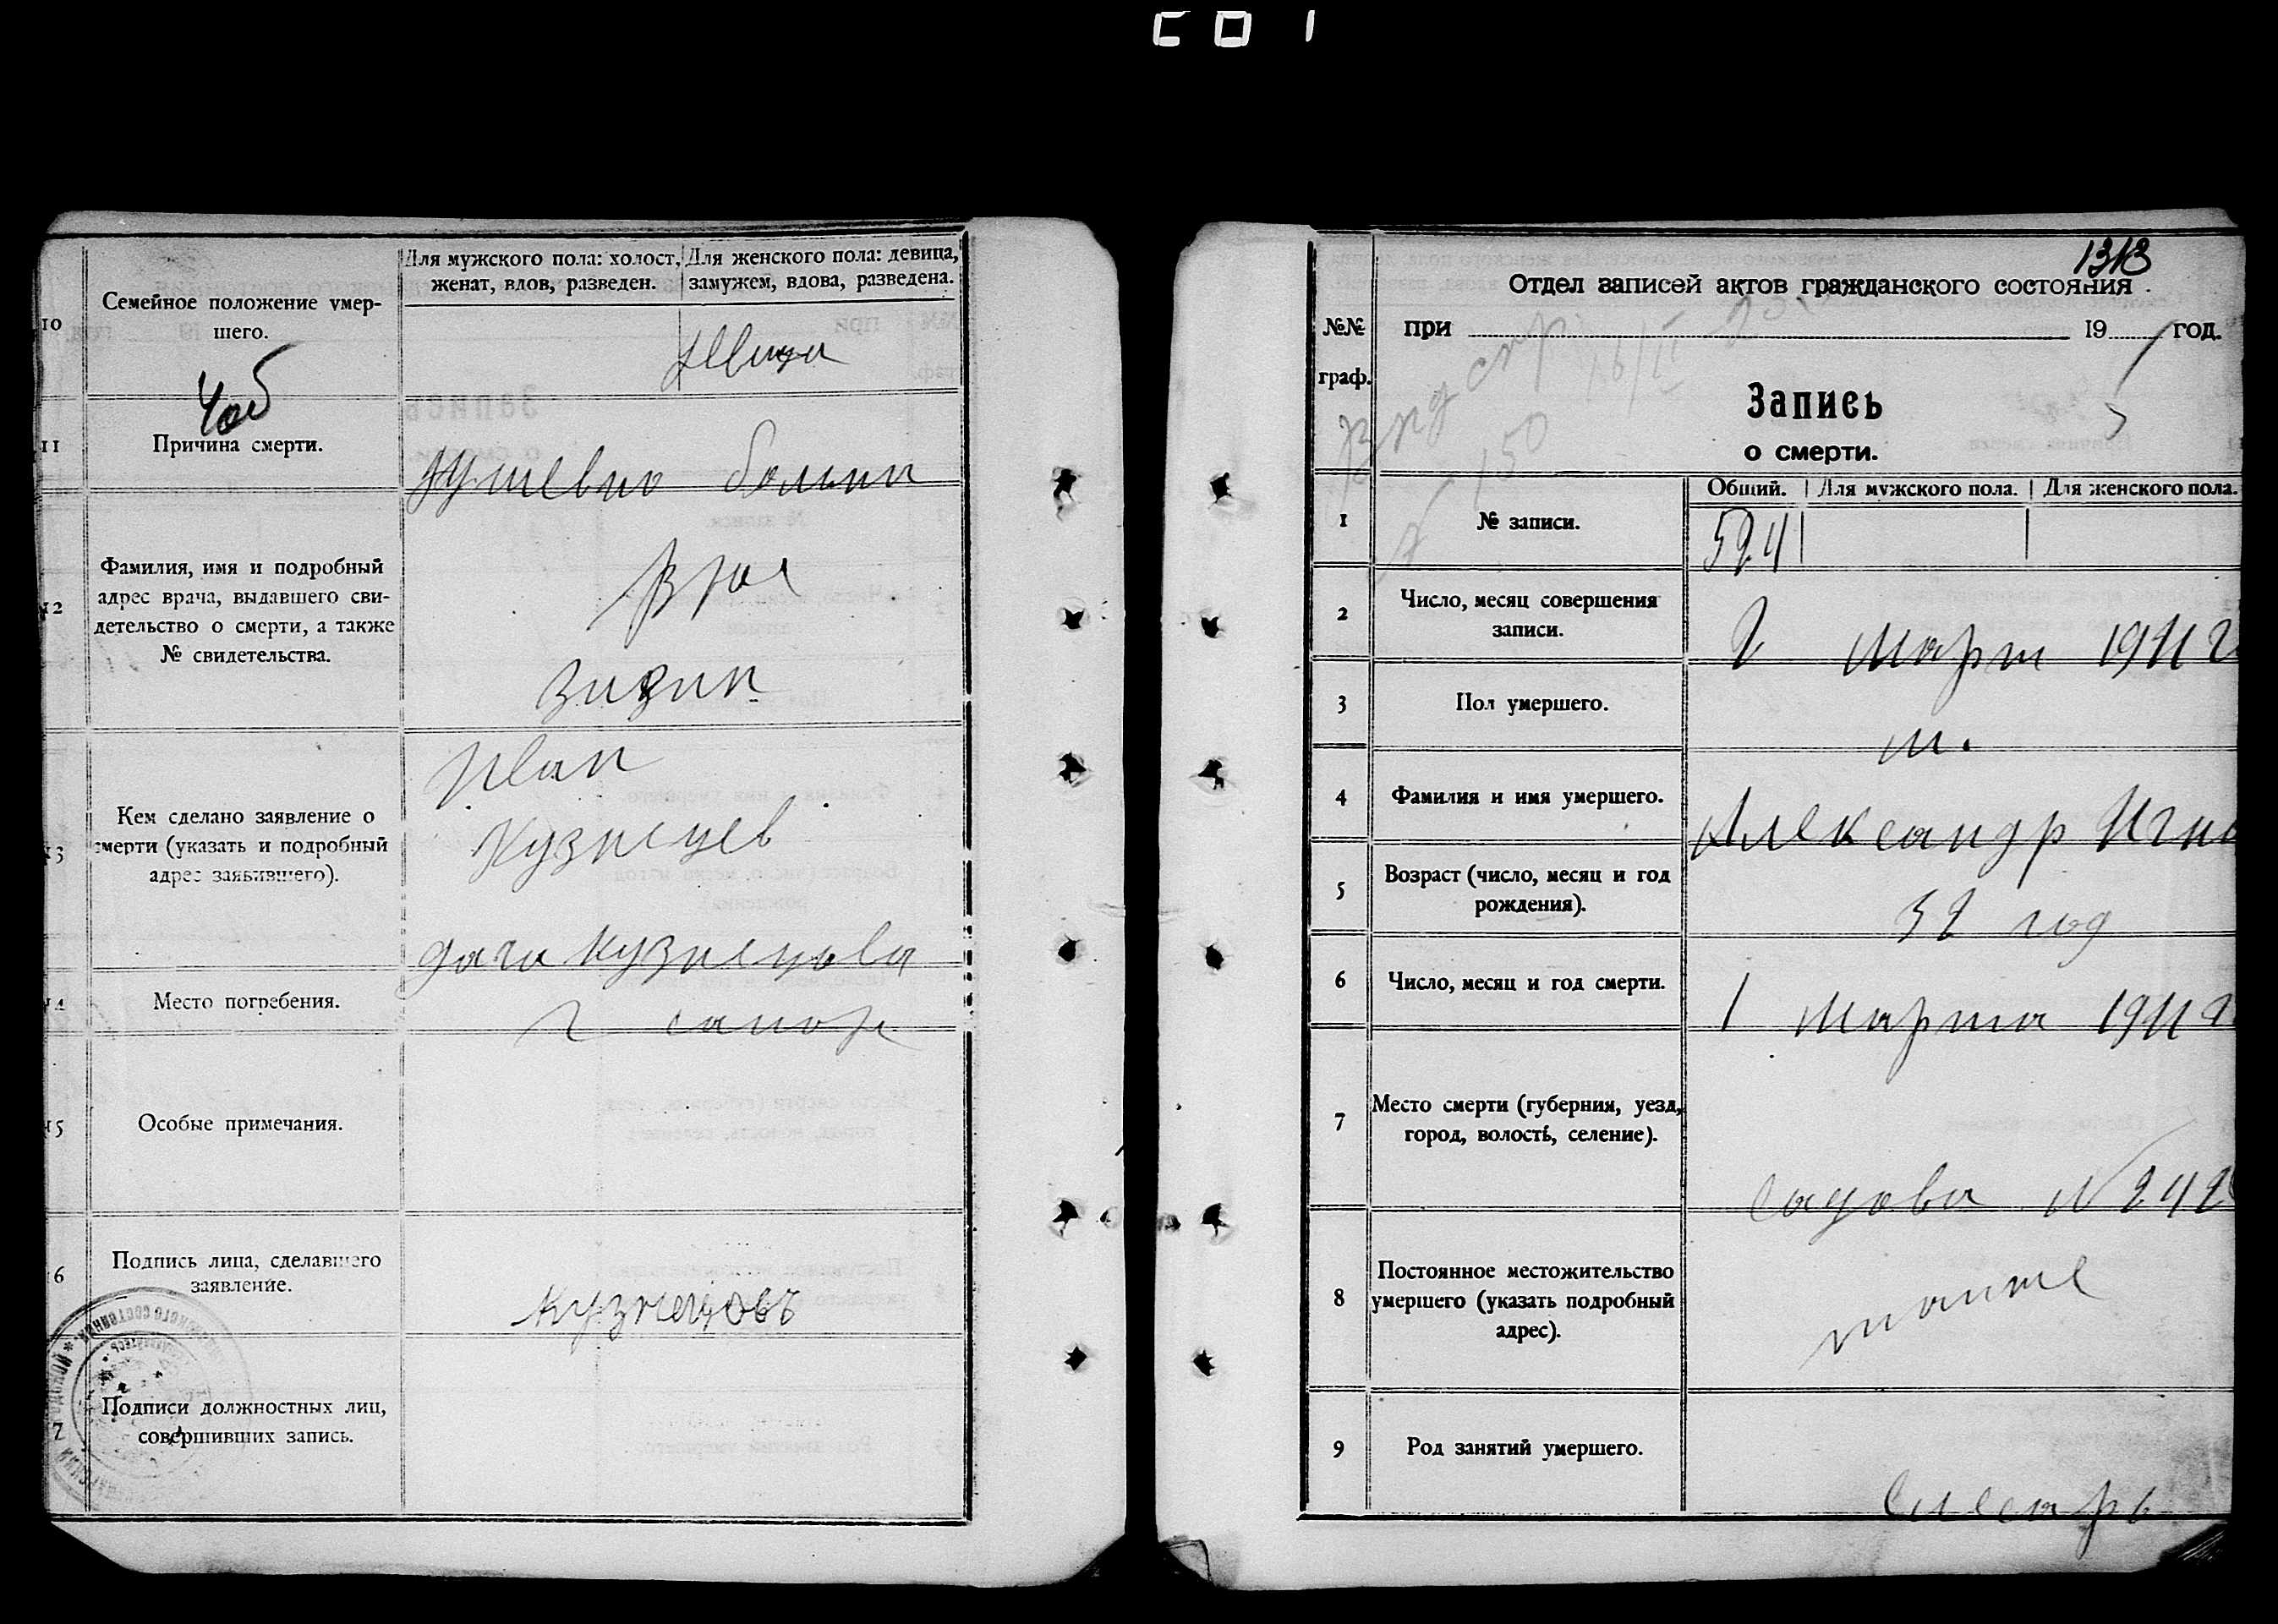 Семейное положение умер-
шего.
Для мужского пола: холост,
женат, вдов, разведен.
Для женского пола: девица,
замужем, вдова, разведена.
10
девица
11
Причина смерти.
Душевно болын
12
Фамилия, имя и подробный
адрес врача, выдавшего сви-
детельство о смерти, а также
№ свидетельства.
13
Кем сделано заявление о
смерти (указать и подробный
адрес заявившего).
Иван
Кузнецев
дача Кузнецова
14
Место погребения.
15
Особые примечания.
6
Подпись лица, сделавшего
заявление.
Кузнецовъ
Подписи должностных лиц,
совершивших запись.
1313
Отдел записей актов гражданского состояния
№№
граф.
при 19 год.
Запись
о смерти.
Общий. Для мужского пола. Для женского пола.
1
№ записи.
524
2
Число, месяц совершения
записи.
3
Пол умершего.
м.
4
Фамилия и имя умершего.
Александр
5
Возраст (число, месяц и год
рождения).
52 год
6
Число, месяц и год смерти.
1 марта
7
Место смерти (губерния, уезд,
город, волость, селение).
Садова № 242
8
Постоянное местожительство
умершего (указать подробный
адрес).
9
Род занятий умершего.
Слесарь